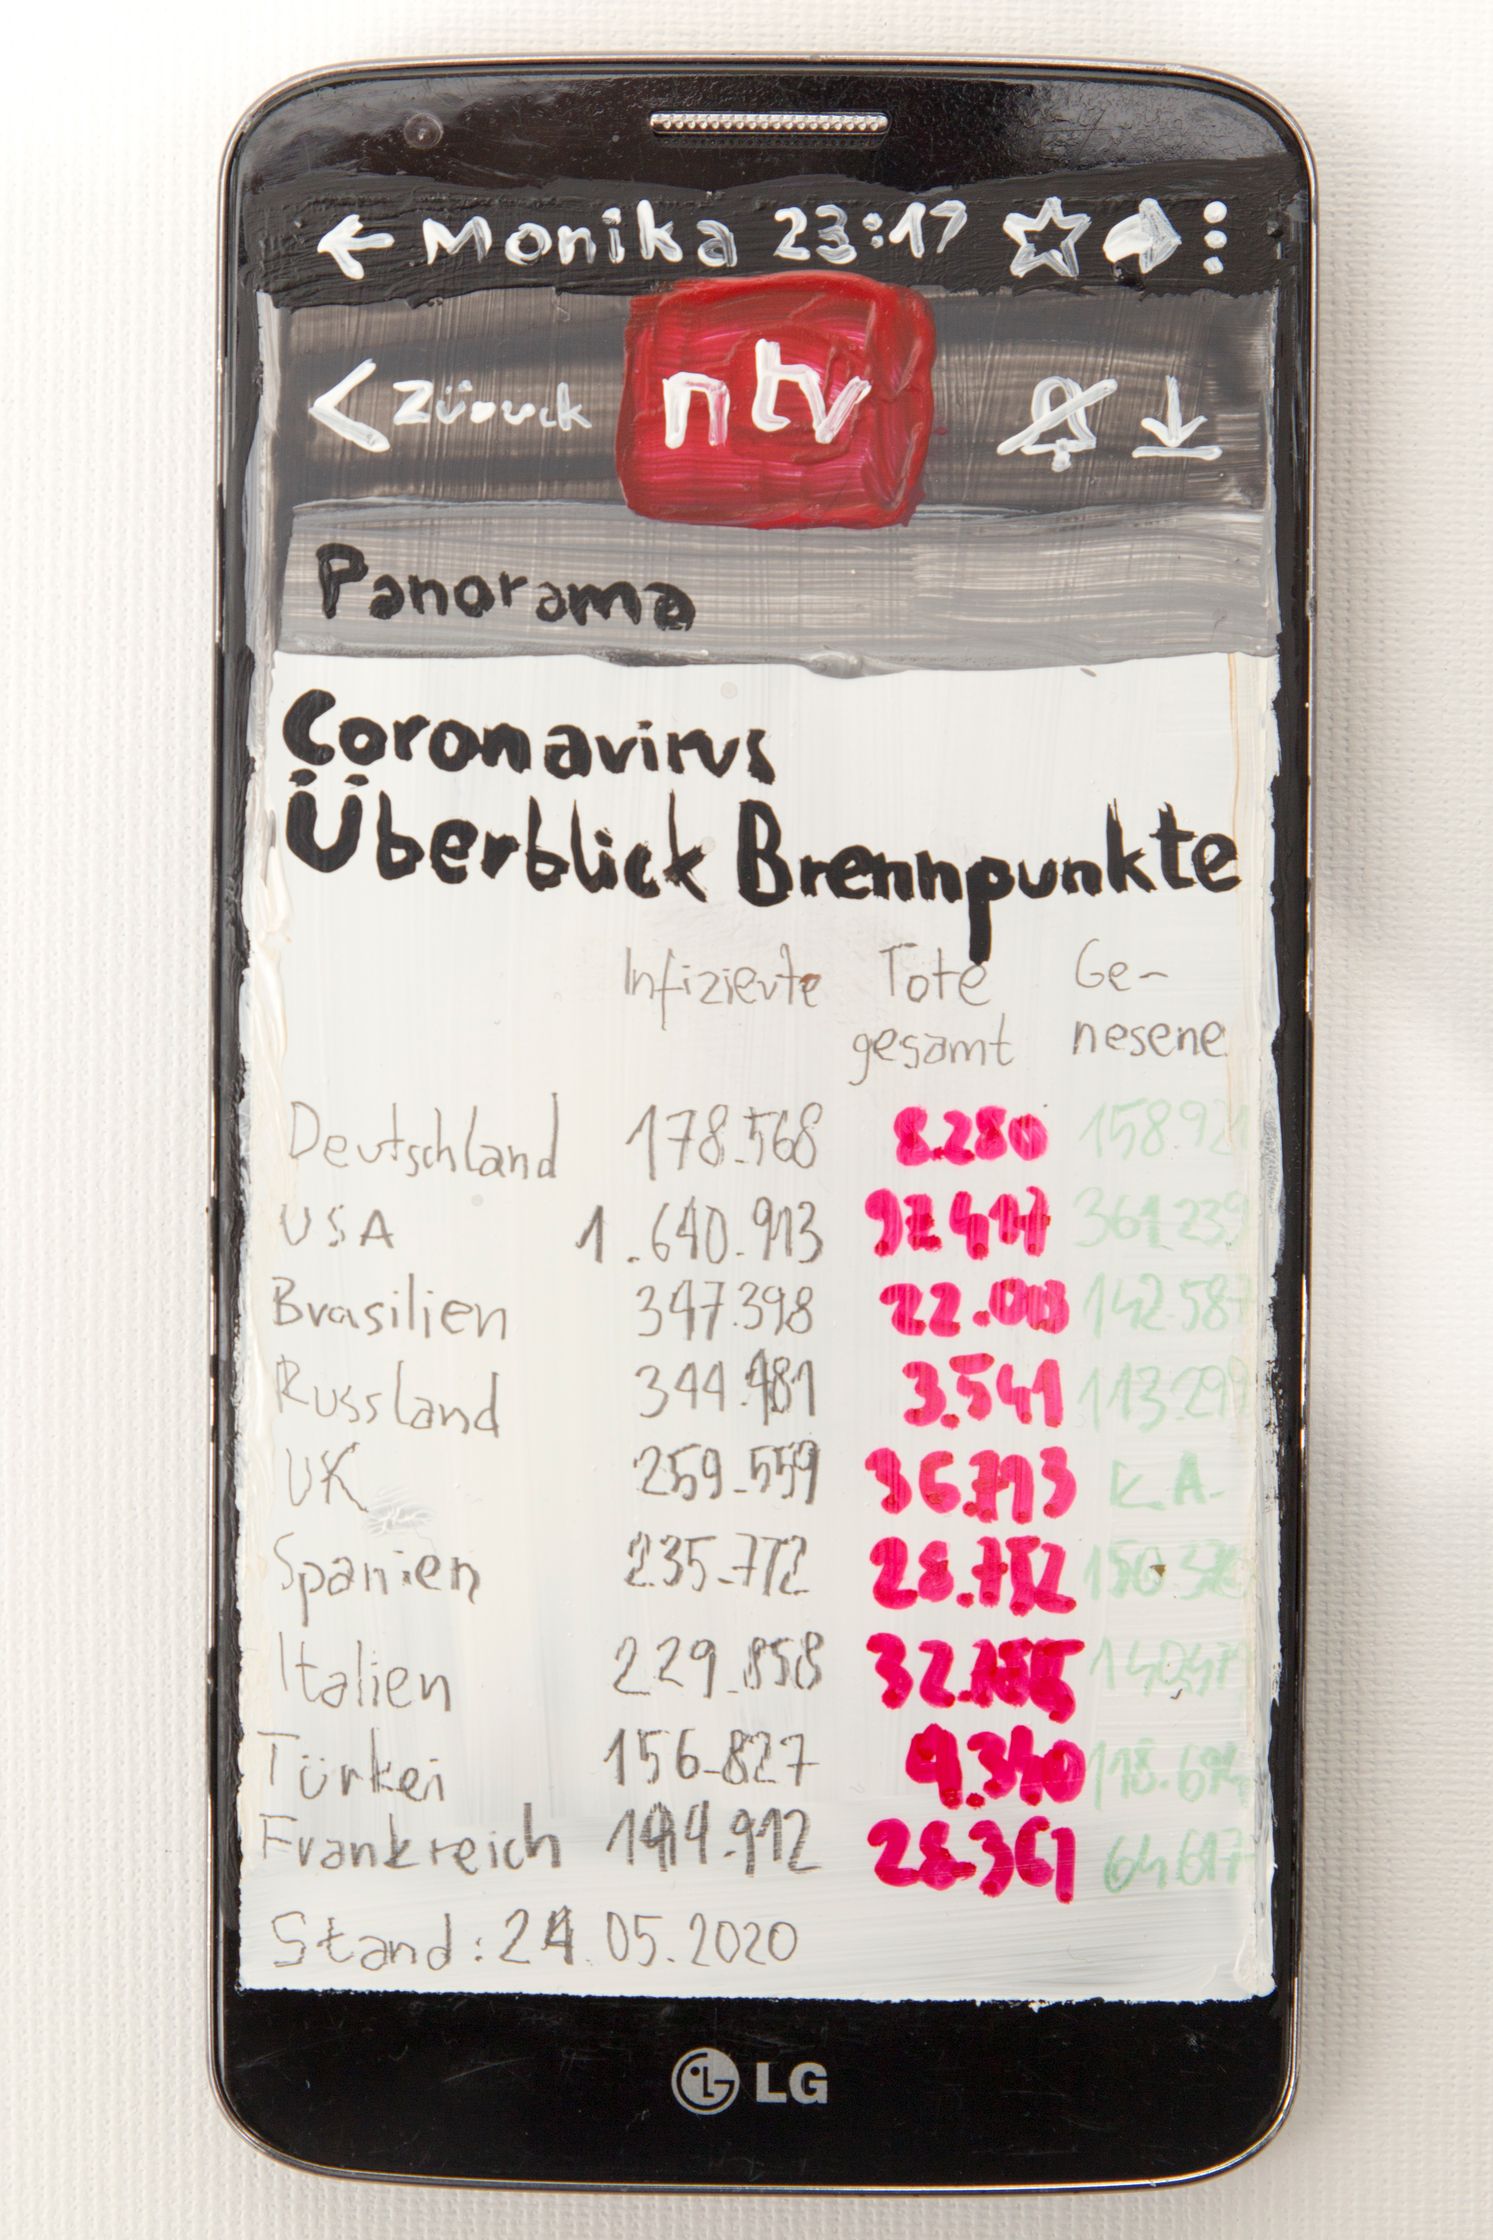 Monika 23:17
Zürück
ntv
Panorama
Coronavirus
Überblick Brennpunkte
Infizierte Tote Ge-
gesamt nesene
Deutschland 178.568 8.280
USA 1.640.913 361.239
Brasilien 347.398 142.587
Russland 344.481 3.541 113.299
UK 259.559 36.793 K.A.
Spanien 235.772 28.752
Italien 229.858
Türkei 156.827 9.340
Frankreich 144.912 28.361 64.617
Stand: 24.05.2020
LG